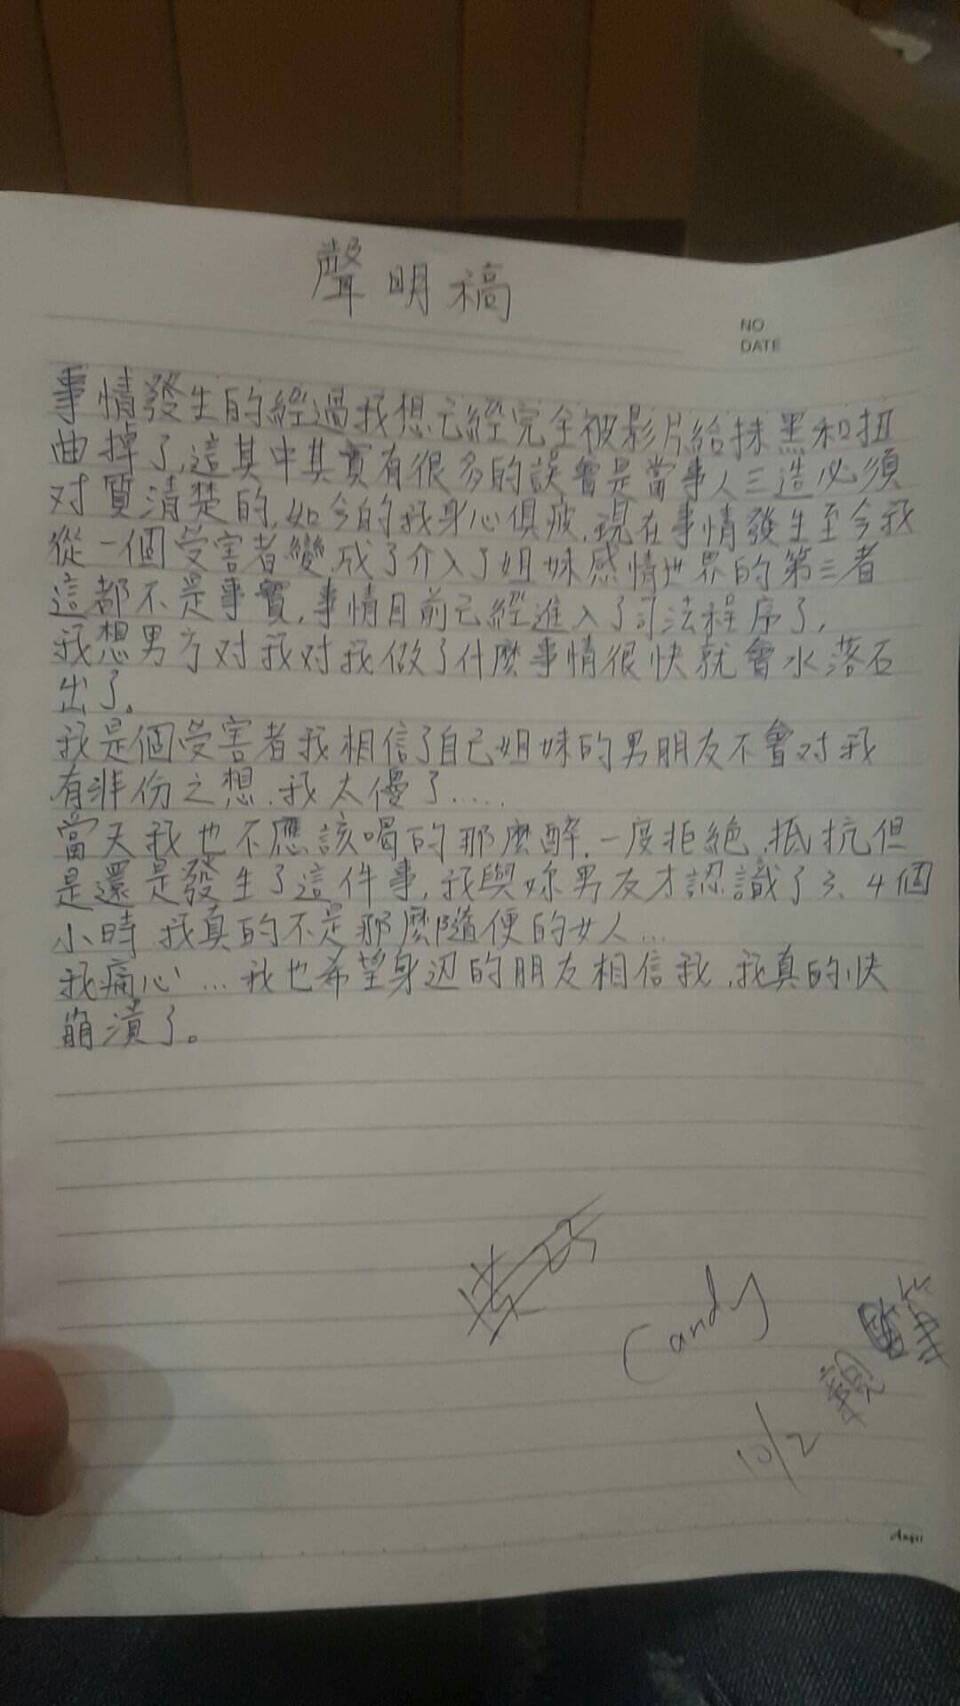 聲明稿
NO
DATE
事情發生的經過我想已經完全被影片給抹黑和扭
曲掉了,這其中其實有很多的誤會是當事人三造必須
对質清楚的,如今的我身心俱疲,現在事情發生至今我
從一個受害者變成了介入了姐妹感情世界的第三者
這都不是事實,事情目前已經進入了司法程序了,
我想男方对我对我做了什麼事情很快就會水落石
出了。
我是個受害者我相信了自己姐妹的男朋友不會对我
有非份之想,我太傻了.....
當天我也不應該喝的那麼醉,一度拒絕,抵抗但
是還是發生了這件事,我與妳男友才認識了3、4個
小時 我真的不是那麼隨便的女人...
我痛心...我也希望身辺的朋友相信我,我真的快
崩潰了。
Candy
親筆
10/2